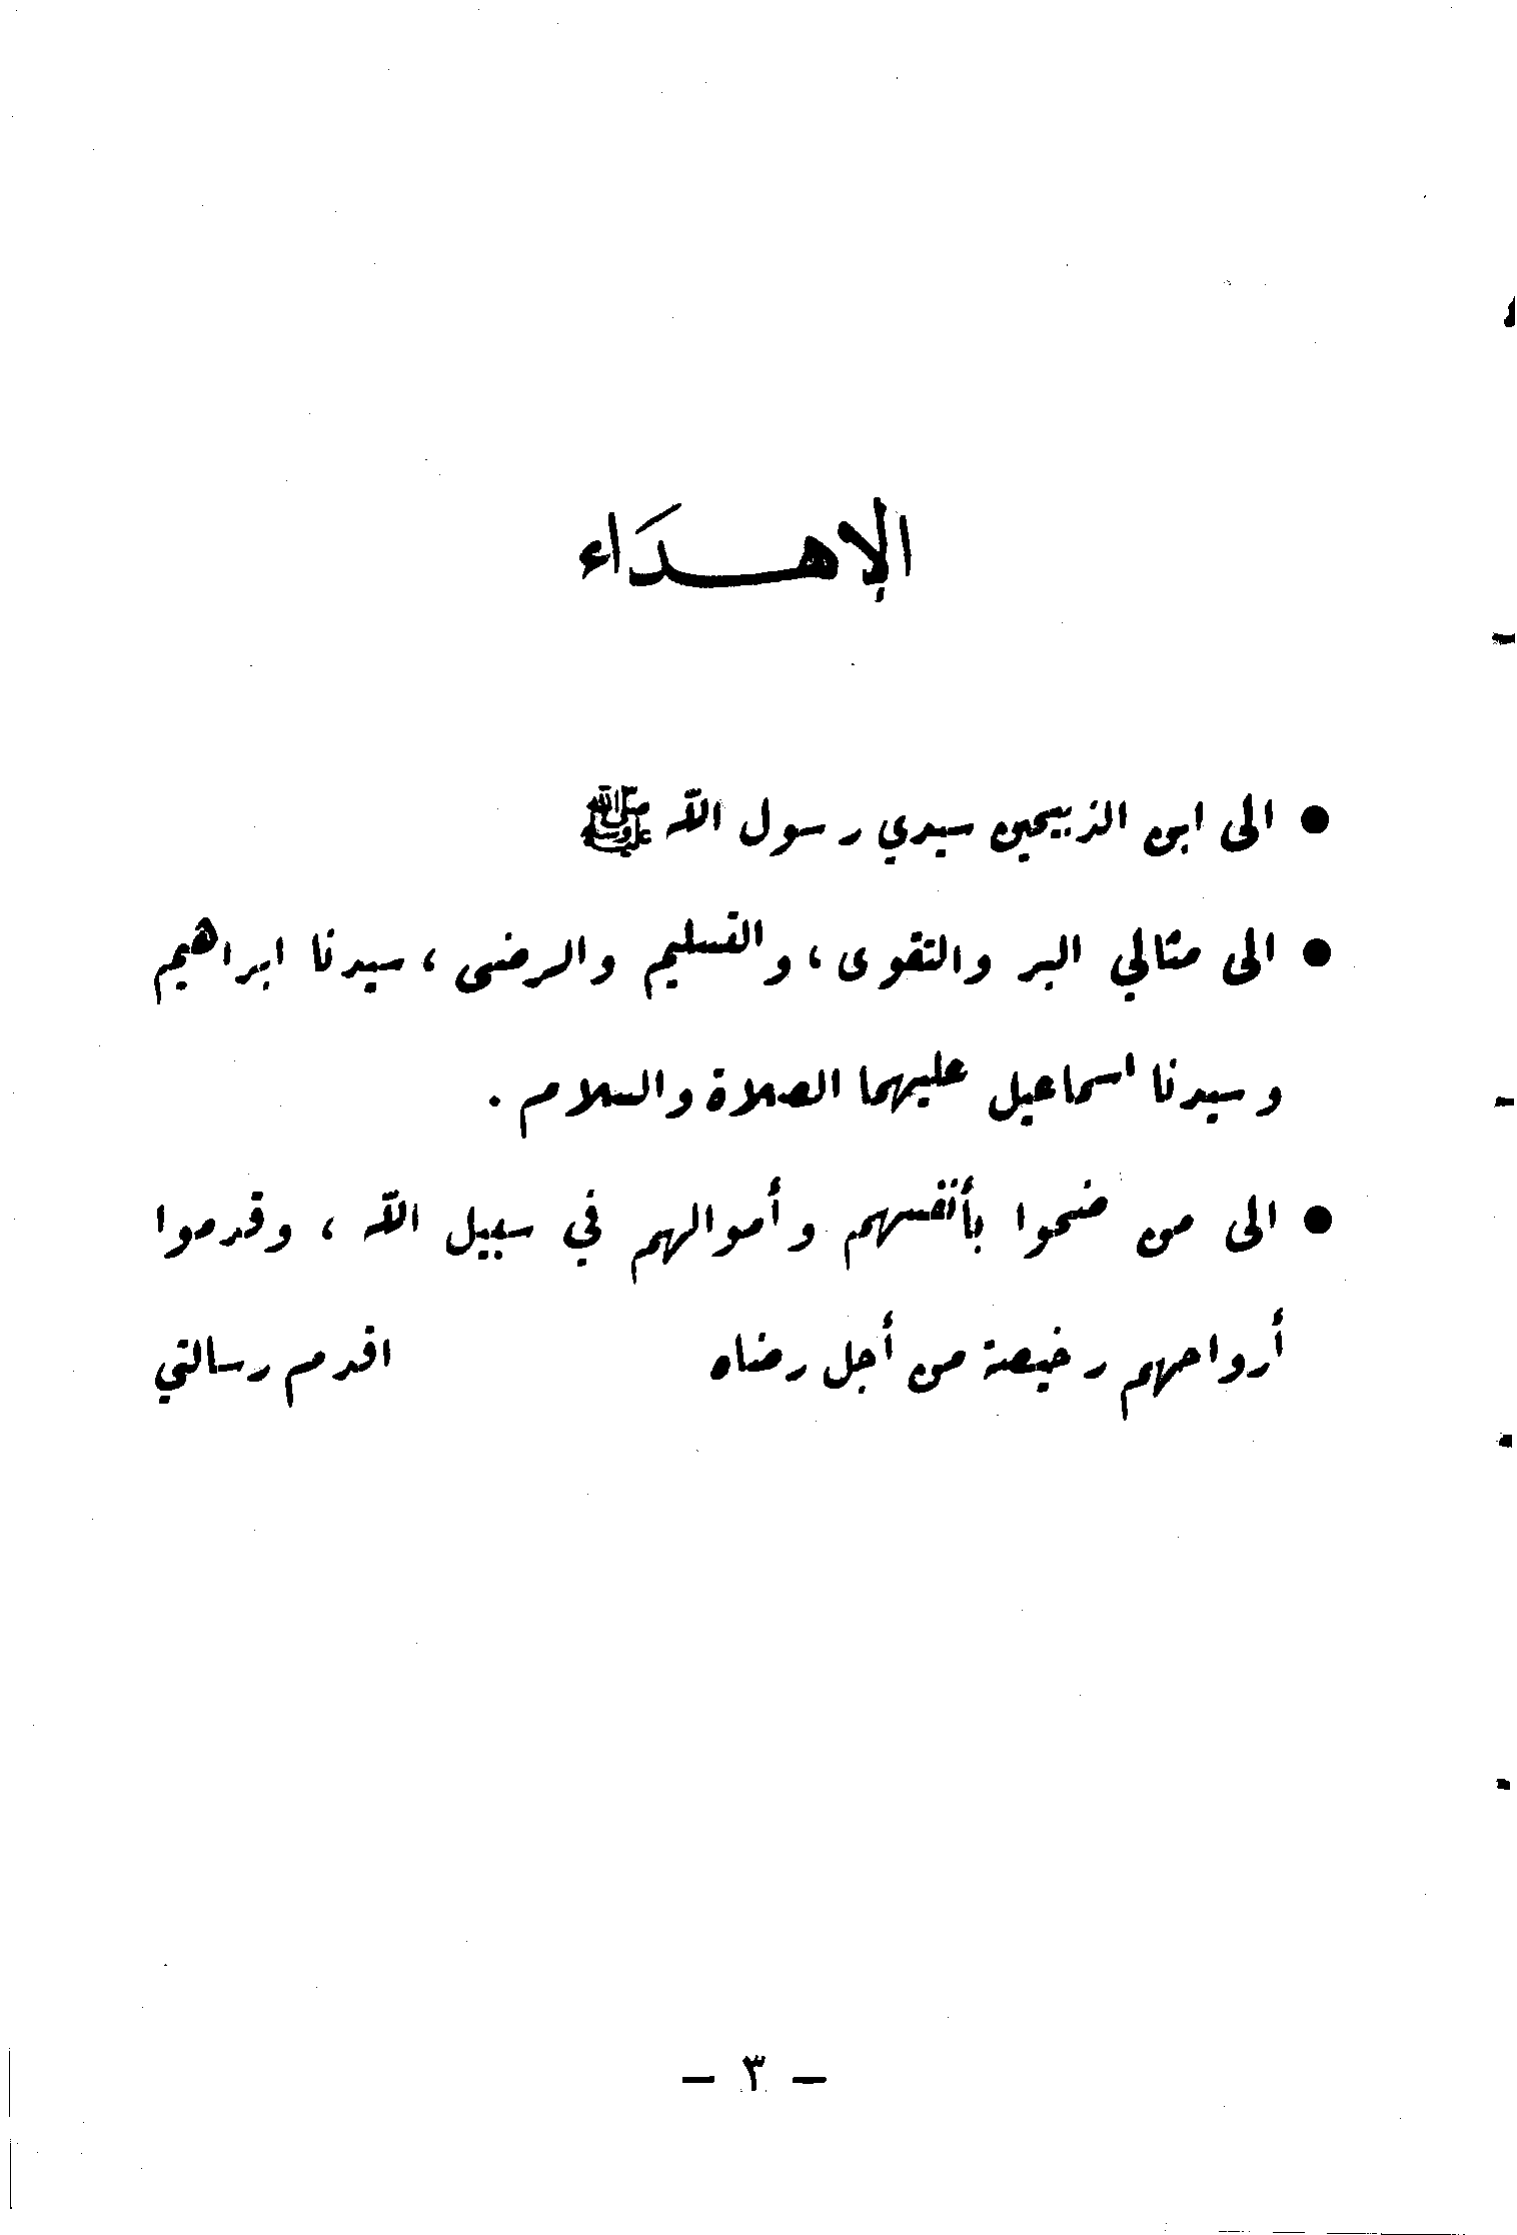 الإهـــدَاء
● الى ابن الذبيحين سيدي رسول الله ﷺ
● الى مثالي البر والتقوى ، والتسليم والرضى ، سيدنا ابراهيم
وسيدنا اسماعيل عليهما الصلاة والسلام .
● الى من ضحوا بأنفسهم وأموالهم في سبيل الله ، وقدموا
أرواحهم رخيصة من أجل رضاه اقدم رسالتي
— ٣ —